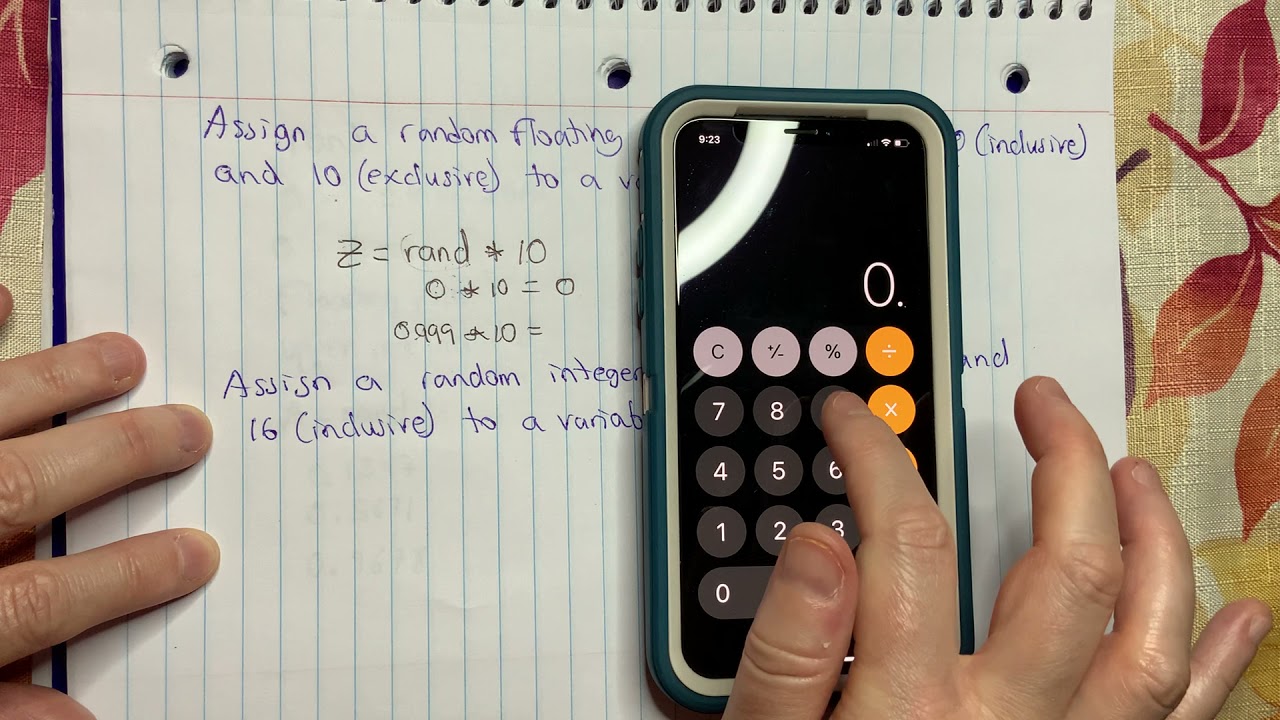 Assign a random floating (inclusive)
and 10 (exclusive) to a
z = rand * 10
0 * 10 = 0
0.999 * 10 =
Assign a random integer and
16 (inclusive) to a variab
9:23
0.
C +/- % ÷
7 8 ×
4 5 6
1 2 3
0